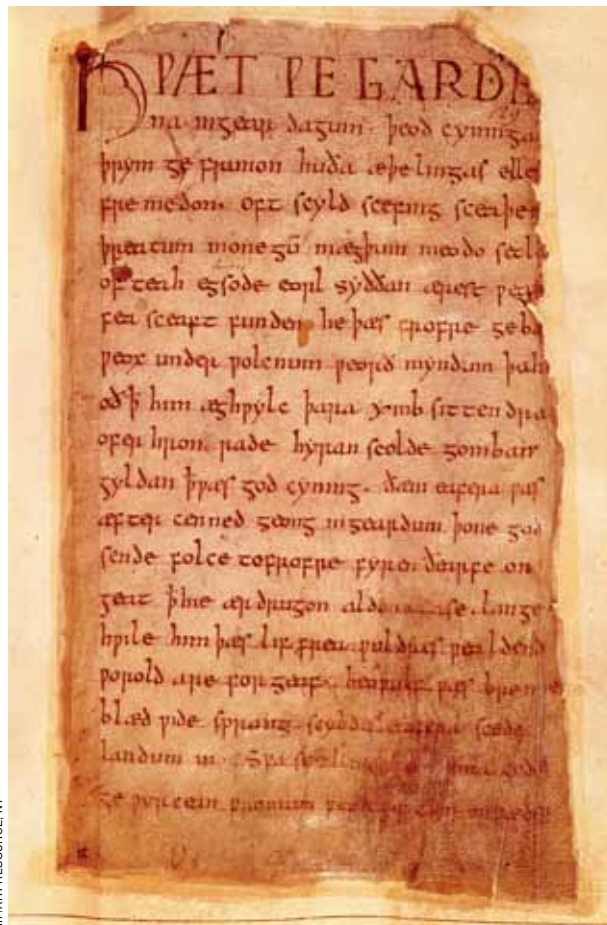 HǷÆT ǷE GARDE
na ingear dagum · þeod cyninga
þrym ge frunon huða æþelingas elle
fre medon. oft scyld scefing sceaþen
þreatum monegū mægþum meodo setla
of teah egsode eorl syððan ærest ƿear
fea sceaft funden he þæs frofre geba
ƿeox under ƿolcnum ƿeorð myndum þah
oð ꝥ him æghƿylc þara ymb sittendra
ofer hron rade hyran scolde gomban
gyldan ꝥ ƿæs god cyning. ðæm eafera ƿæs
æfter cenned geong ingeardum þone god
sende folce tofrofre fyren ðearfe on
geat ꝥ hie ær drugon aldor ase. lange
hƿile him þæs lif frea ƿuldres ƿealdend
ƿorold are for geaf. beoƿulf ƿæs breme
blæd ƿide sprang scyldes eafera scede
landum in. Sƿa guma gode
ge ƿyrcean fromum feoh giftum on fæder